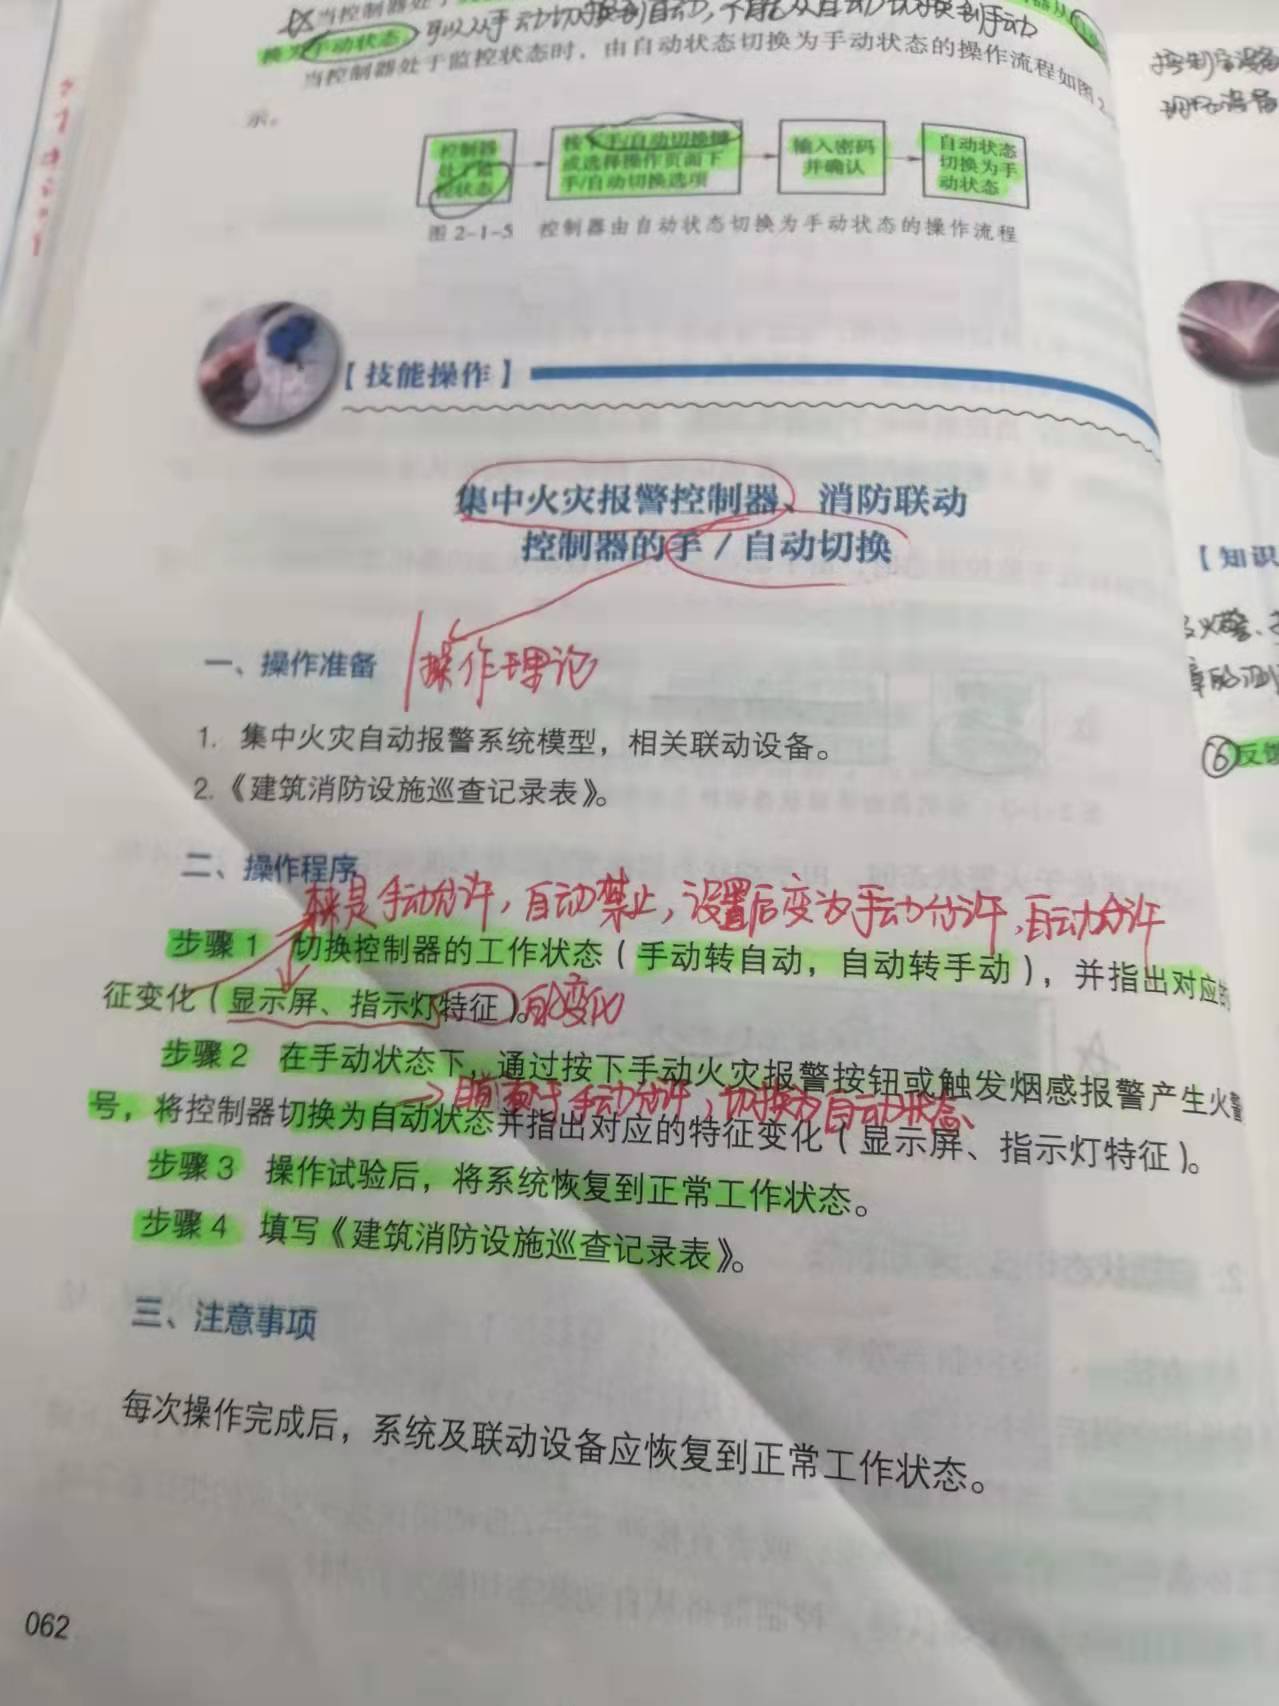 当控制器处于
可以从手动切换到自动，不能从自动切换到手动
换为手动状态
当控制器处于监控状态时，由自动状态切换为手动状态的操作流程如图2
示。
控制器
处于监
控状态
按下手/自动切换键
或选择操作页面下
手/自动切换选项
输入密码
并确认
自动状态
切换为手
动状态
图 2-1-5 控制器由自动状态切换为手动状态的操作流程
【技能操作】
集中火灾报警控制器、消防联动
控制器的手/自动切换
一、操作准备
操作理论
1. 集中火灾自动报警系统模型，相关联动设备。
2.《建筑消防设施巡查记录表》。
二、操作程序
本来是手动允许，自动禁止，设置后变为手动允许，自动允许
步骤1 切换控制器的工作状态（手动转自动，自动转手动），并指出对应的
征变化（显示屏、指示灯特征）。
的变化
步骤2 在手动状态下，通过按下手动火灾报警按钮或触发烟感报警产生火警
手动允许，切换为自动状态
号，将控制器切换为自动状态并指出对应的特征变化（显示屏、指示灯特征）。
步骤3 操作试验后，将系统恢复到正常工作状态。
步骤4 填写《建筑消防设施巡查记录表》。
三、注意事项
每次操作完成后，系统及联动设备应恢复到正常工作状态。
062
【知识
⑥反馈